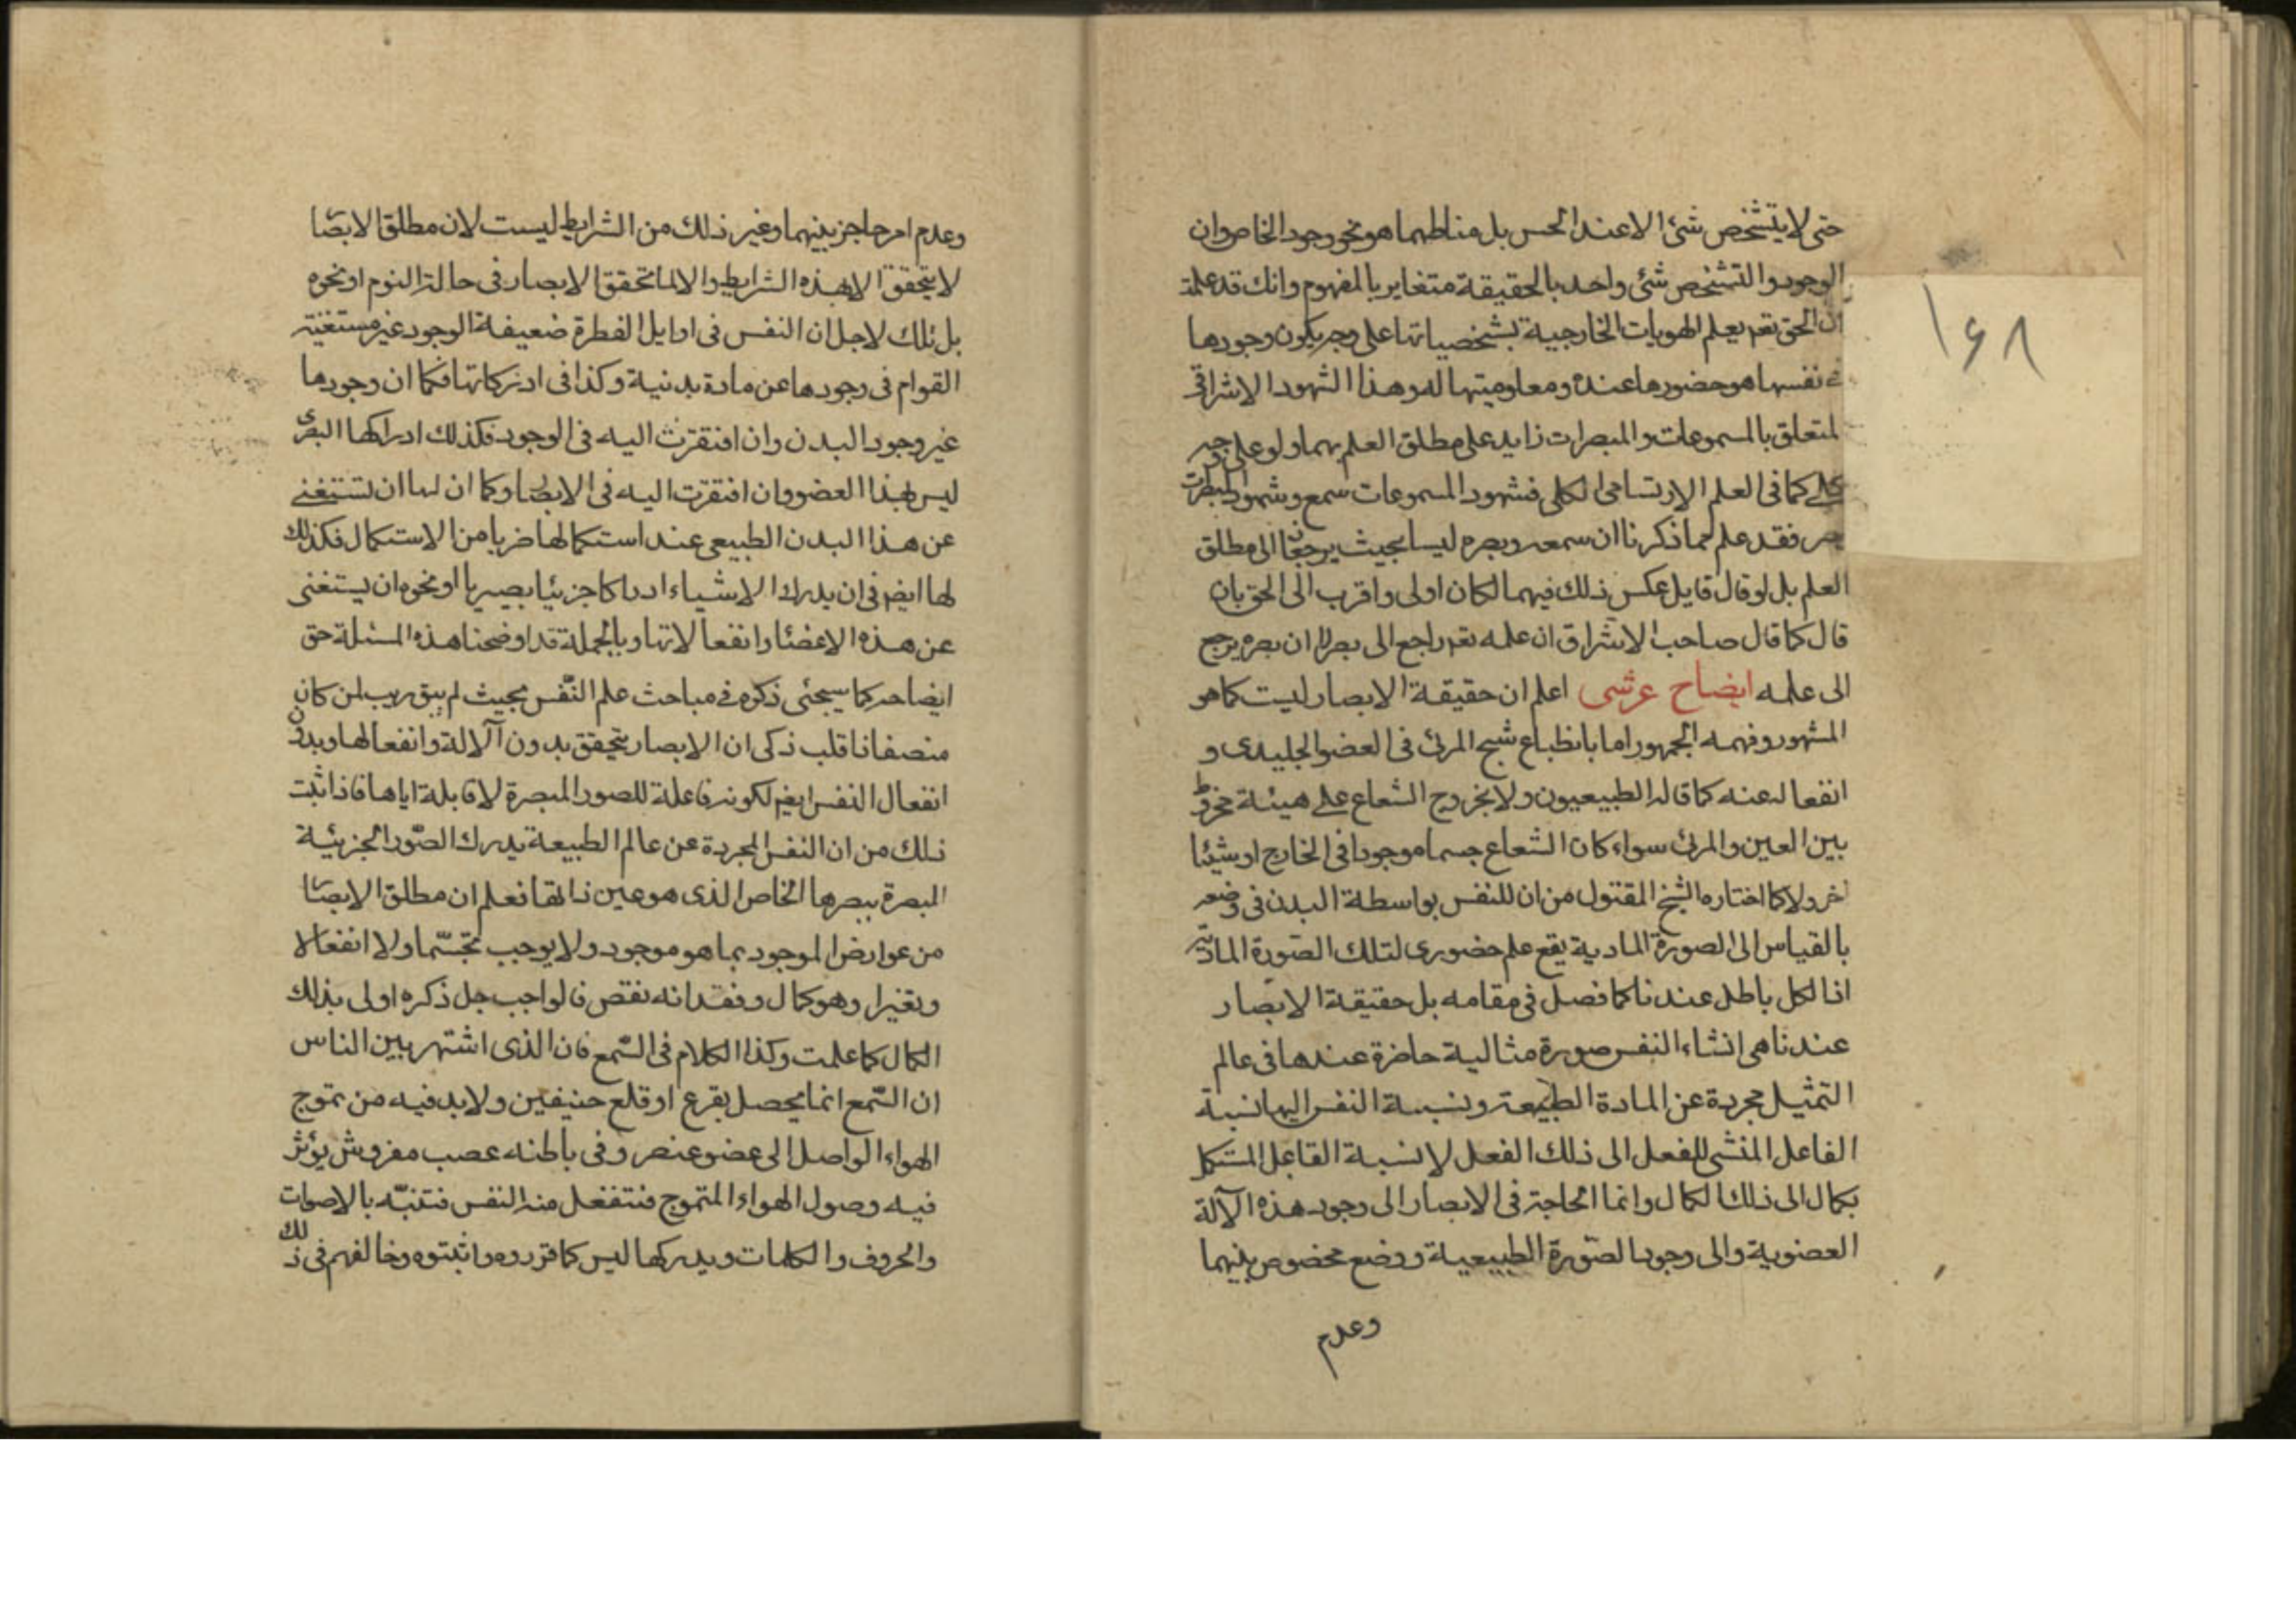 حتى لا يتشخص شئ الا عند الحس بل مناطهما هو نحو وجود الخاص وان
الوجود والتشخص شئ واحد بالحقيقة متغاير بالمفهوم وانك قد علمت
ان الحق تعم يعلم الهويات الخارجية بشخصياتها على وجه يكون وجودها
فى نفسها هو حضورها عنده ومعلوميتها له وهذا الشهود الاشراقى
لمتعلق بالمسموعات والمبصرات زايد على مطلق العلم بهما ولو على وجه
كلى كما فى العلم الارتسامى الكلى فشهود المسموعات سمع وشهود المبصرات
بصر فقد علم مما ذكرنا ان سمعه وبصره ليسا بحيث يرجعان الى مطلق
العلم بل لو قال قايل عكس ذلك فيهما لكان اولى واقرب الى الحق بان
قال كما قال صاحب الاشراق ان علمه تعم راجع الى بصره لا ان بصره يرجع
الى علمه ايضاح عرشى اعلم ان حقيقة الابصار ليست كما هو
المشهور وفهمه الجمهور اما بانطباع شبح المرئ فى العضو الجليدى و
انفعاله عنه كما قاله الطبيعيون ولا بخروج الشعاع على هيئة مخروط
بين العين والمرئ سواء كان الشعاع جسما موجودا فى الخارج او شيئا
اخر ولا كما اختاره الشيخ المقتول من ان للنفس بواسطة البدن فى وضعه
بالقياس الى الصورة المادية يقع علم حضورى لتلك الصورة المادية
اذ الكل باطل عندنا كما فصل فى مقامه بل حقيقة الابصار
عندنا هى انشاء النفس صورة مثالية حاضرة عندها فى عالم
التمثيل مجردة عن المادة الطبيعة ونسبة النفس اليها نسبة
الفاعل المنشى للفعل الى ذلك الفعل لا نسبة القابل المستكمل
بكمال الى ذلك الكمال وانما الحاجة فى الابصار الى وجود هذه الآلة
العضوية والى وجود الصورة الطبيعية ووضع مخصوص بينهما
وعدم
١٦٨
وعدم امر حاجز بينهما وغير ذلك من الشرايط ليست لان مطلق الابصار
لا يتحقق الا بهذه الشرايط والا لما تحقق الابصار فى حالة النوم او نحوه
بل ذلك لاجل ان النفس فى اوايل الفطرة ضعيفة الوجود غير مستغنية
القوام فى وجودها عن مادة بدنية وكذا فى ادراكاتها فكما ان وجودها
غير وجود البدن وان افتقرت اليه فى الوجود فكذلك ادراكها البصرى
ليس بهذا العضو وان افتقرت اليه فى الابصار وكما ان لها ان تستغنى
عن هذا البدن الطبيعى عند استكمالها ضربا من الاستكمال فكذلك
لها ايضا فى ان يدرك الاشياء ادراكا جزئيا بصيريا او نحوه ان يستغنى
عن هذه الاعضاء وانفعالاتها وبالجملة قد اوضحنا هذه المسئلة حق
ايضاحه كما سيجئى ذكره فى مباحث علم النفس بحيث لم يبق ريب لمن كان
منصفا ذا قلب ذكى ان الابصار يتحقق بدون الآلة وانفعالها وبدون
انفعال النفس ايضا لكونه فاعلة للصور المبصرة لا قابلة اياها فاذا ثبت
ذلك من ان النفس المجردة عن عالم الطبيعة يدرك الصور الجزئية
المبصرة ببصرها الخاص الذى هو عين ذاتها فعلم ان مطلق الابصار
من عوارض الموجود بما هو موجود ولا يوجب تجسما ولا انفعالا
وتغيرا وهو كمال وفقدانه نقص فالواجب جل ذكره اولى بذلك
الكمال كما علمت وكذا الكلام فى السمع فان الذى اشتهر بين الناس
ان السمع انما يحصل بقرع او قلع عنيفين ولا بد فيه من تموج
الهواء الواصل الى عضو غضروفى باطنه عصب مفروش يؤثر
فيه وصول الهواء المتموج فتنفعل منه النفس فتنبه بالاصوات
والحروف والكلمات ويدركها ليس كما قرروه واثبتوه وخالفهم فى ذلك